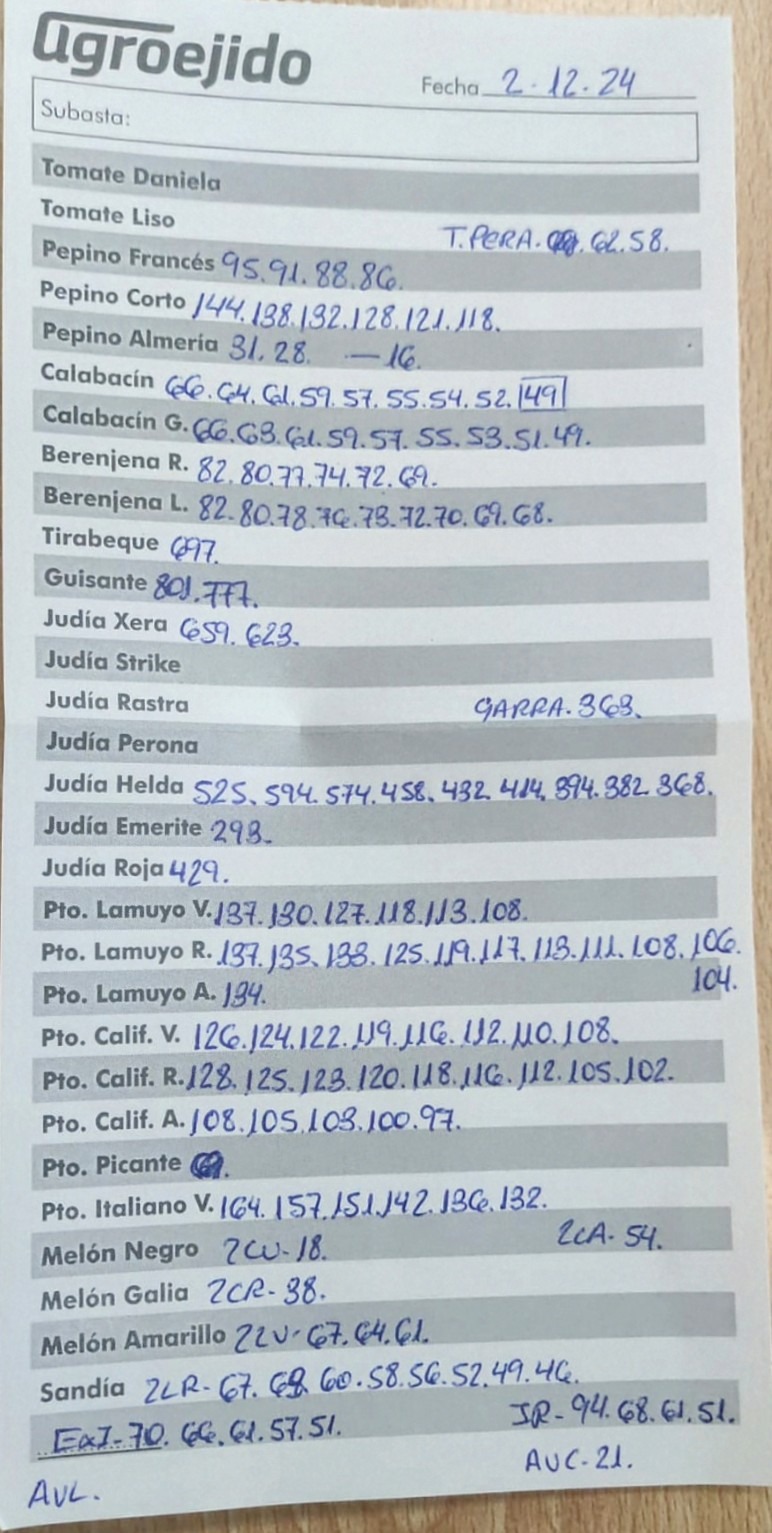 agroejido
Fecha 2.12.24
Subasta:
Tomate Daniela
Tomate Liso
T.PERA. 62.58.
Pepino Francés 95.91.88.86.
Pepino Corto 144.138.132.128.121.118.
Pepino Almería 31.28. — 16.
Calabacín 66.64.61.59.57.55.54.52.|49|
Calabacín G. 66.63.61.59.57.55.53.51.49.
Berenjena R. 82.80.77.74.72.69.
Berenjena L. 82.80.78.76.73.72.70.69.68.
Tirabeque 697.
Guisante 801.777.
Judía Xera 659.623.
Judía Strike
Judía Rastra GARRA.363.
Judía Perona
Judía Helda 525.594.574.458.432.414.394.382.368.
Judía Emerite 293.
Judía Roja 429.
Pto. Lamuyo V. 137.130.127.118.113.108.
Pto. Lamuyo R. 137.135.133.125.119.117.113.111.108.106.
104.
Pto. Lamuyo A. 134.
Pto. Calif. V. 126.124.122.119.116.112.110.108.
Pto. Calif. R. 128.125.123.120.118.116.112.105.102.
Pto. Calif. A. 108.105.103.100.97.
Pto. Picante
Pto. Italiano V. 164.157.151.142.136.132.
Melón Negro 2CV-18. 2CA-54.
Melón Galia 2CR-38.
Melón Amarillo 2LV-67.64.61.
Sandía 2LR-67.63.60.58.56.52.49.46.
ExI-70.66.61.57.51. IR-94.68.61.51.
AVC-21.
AVL.